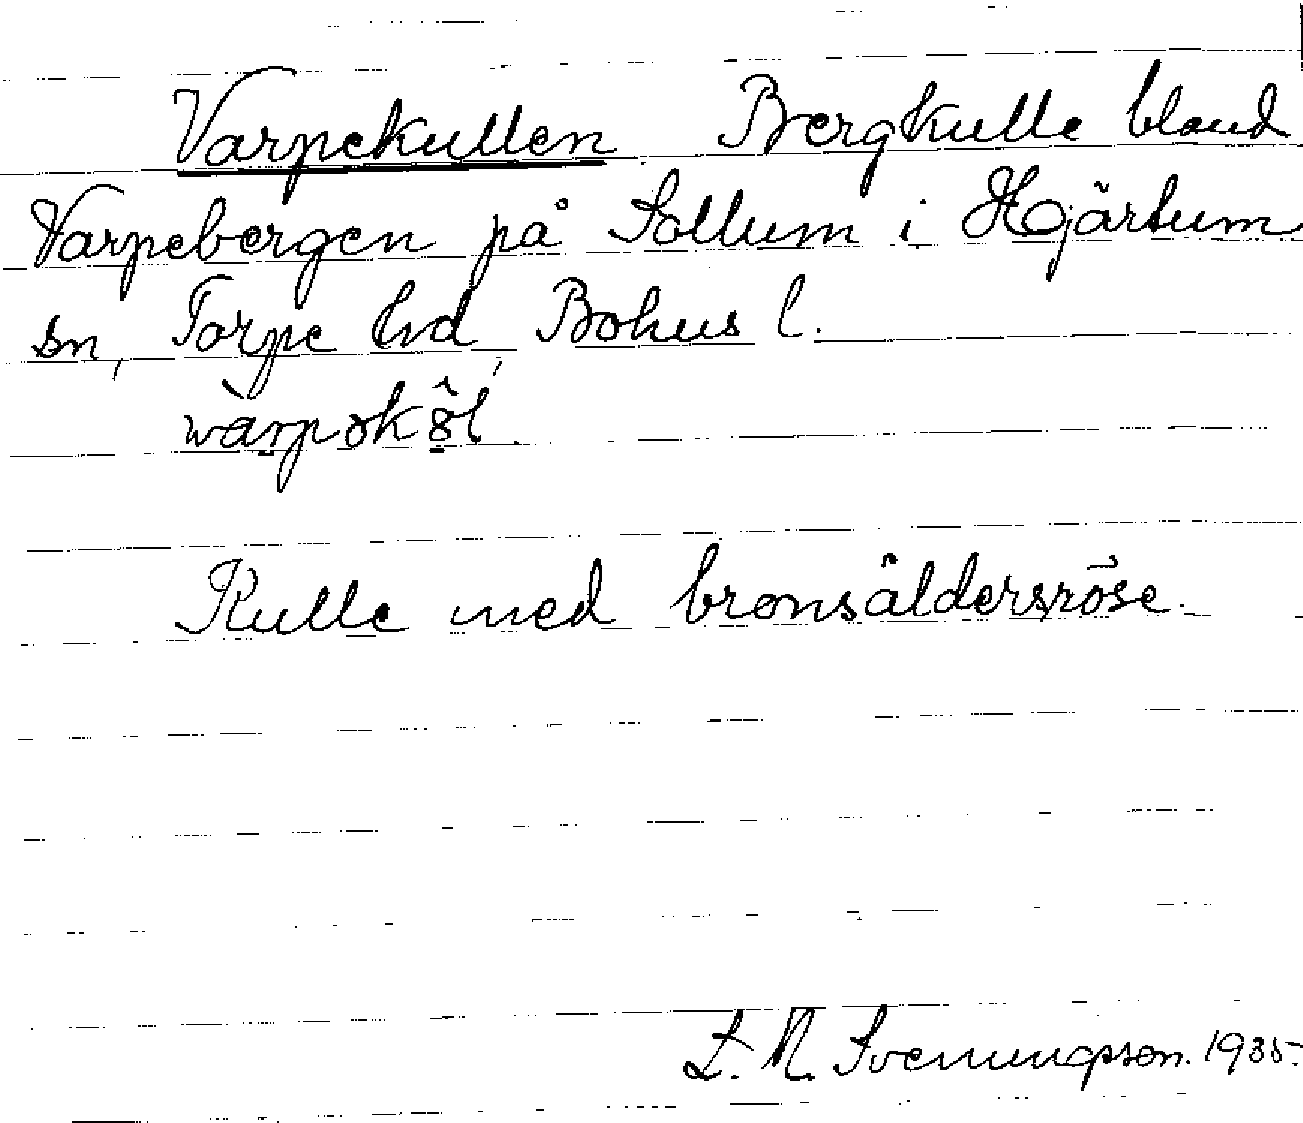 Varpekullen Bergkulle bland
Varpebergen på Sollum i Hjärtum
sn, Torpe hd, Bohus l.
Kulle med bronsåldersröse.
L. M. Svenungsson. 1935.